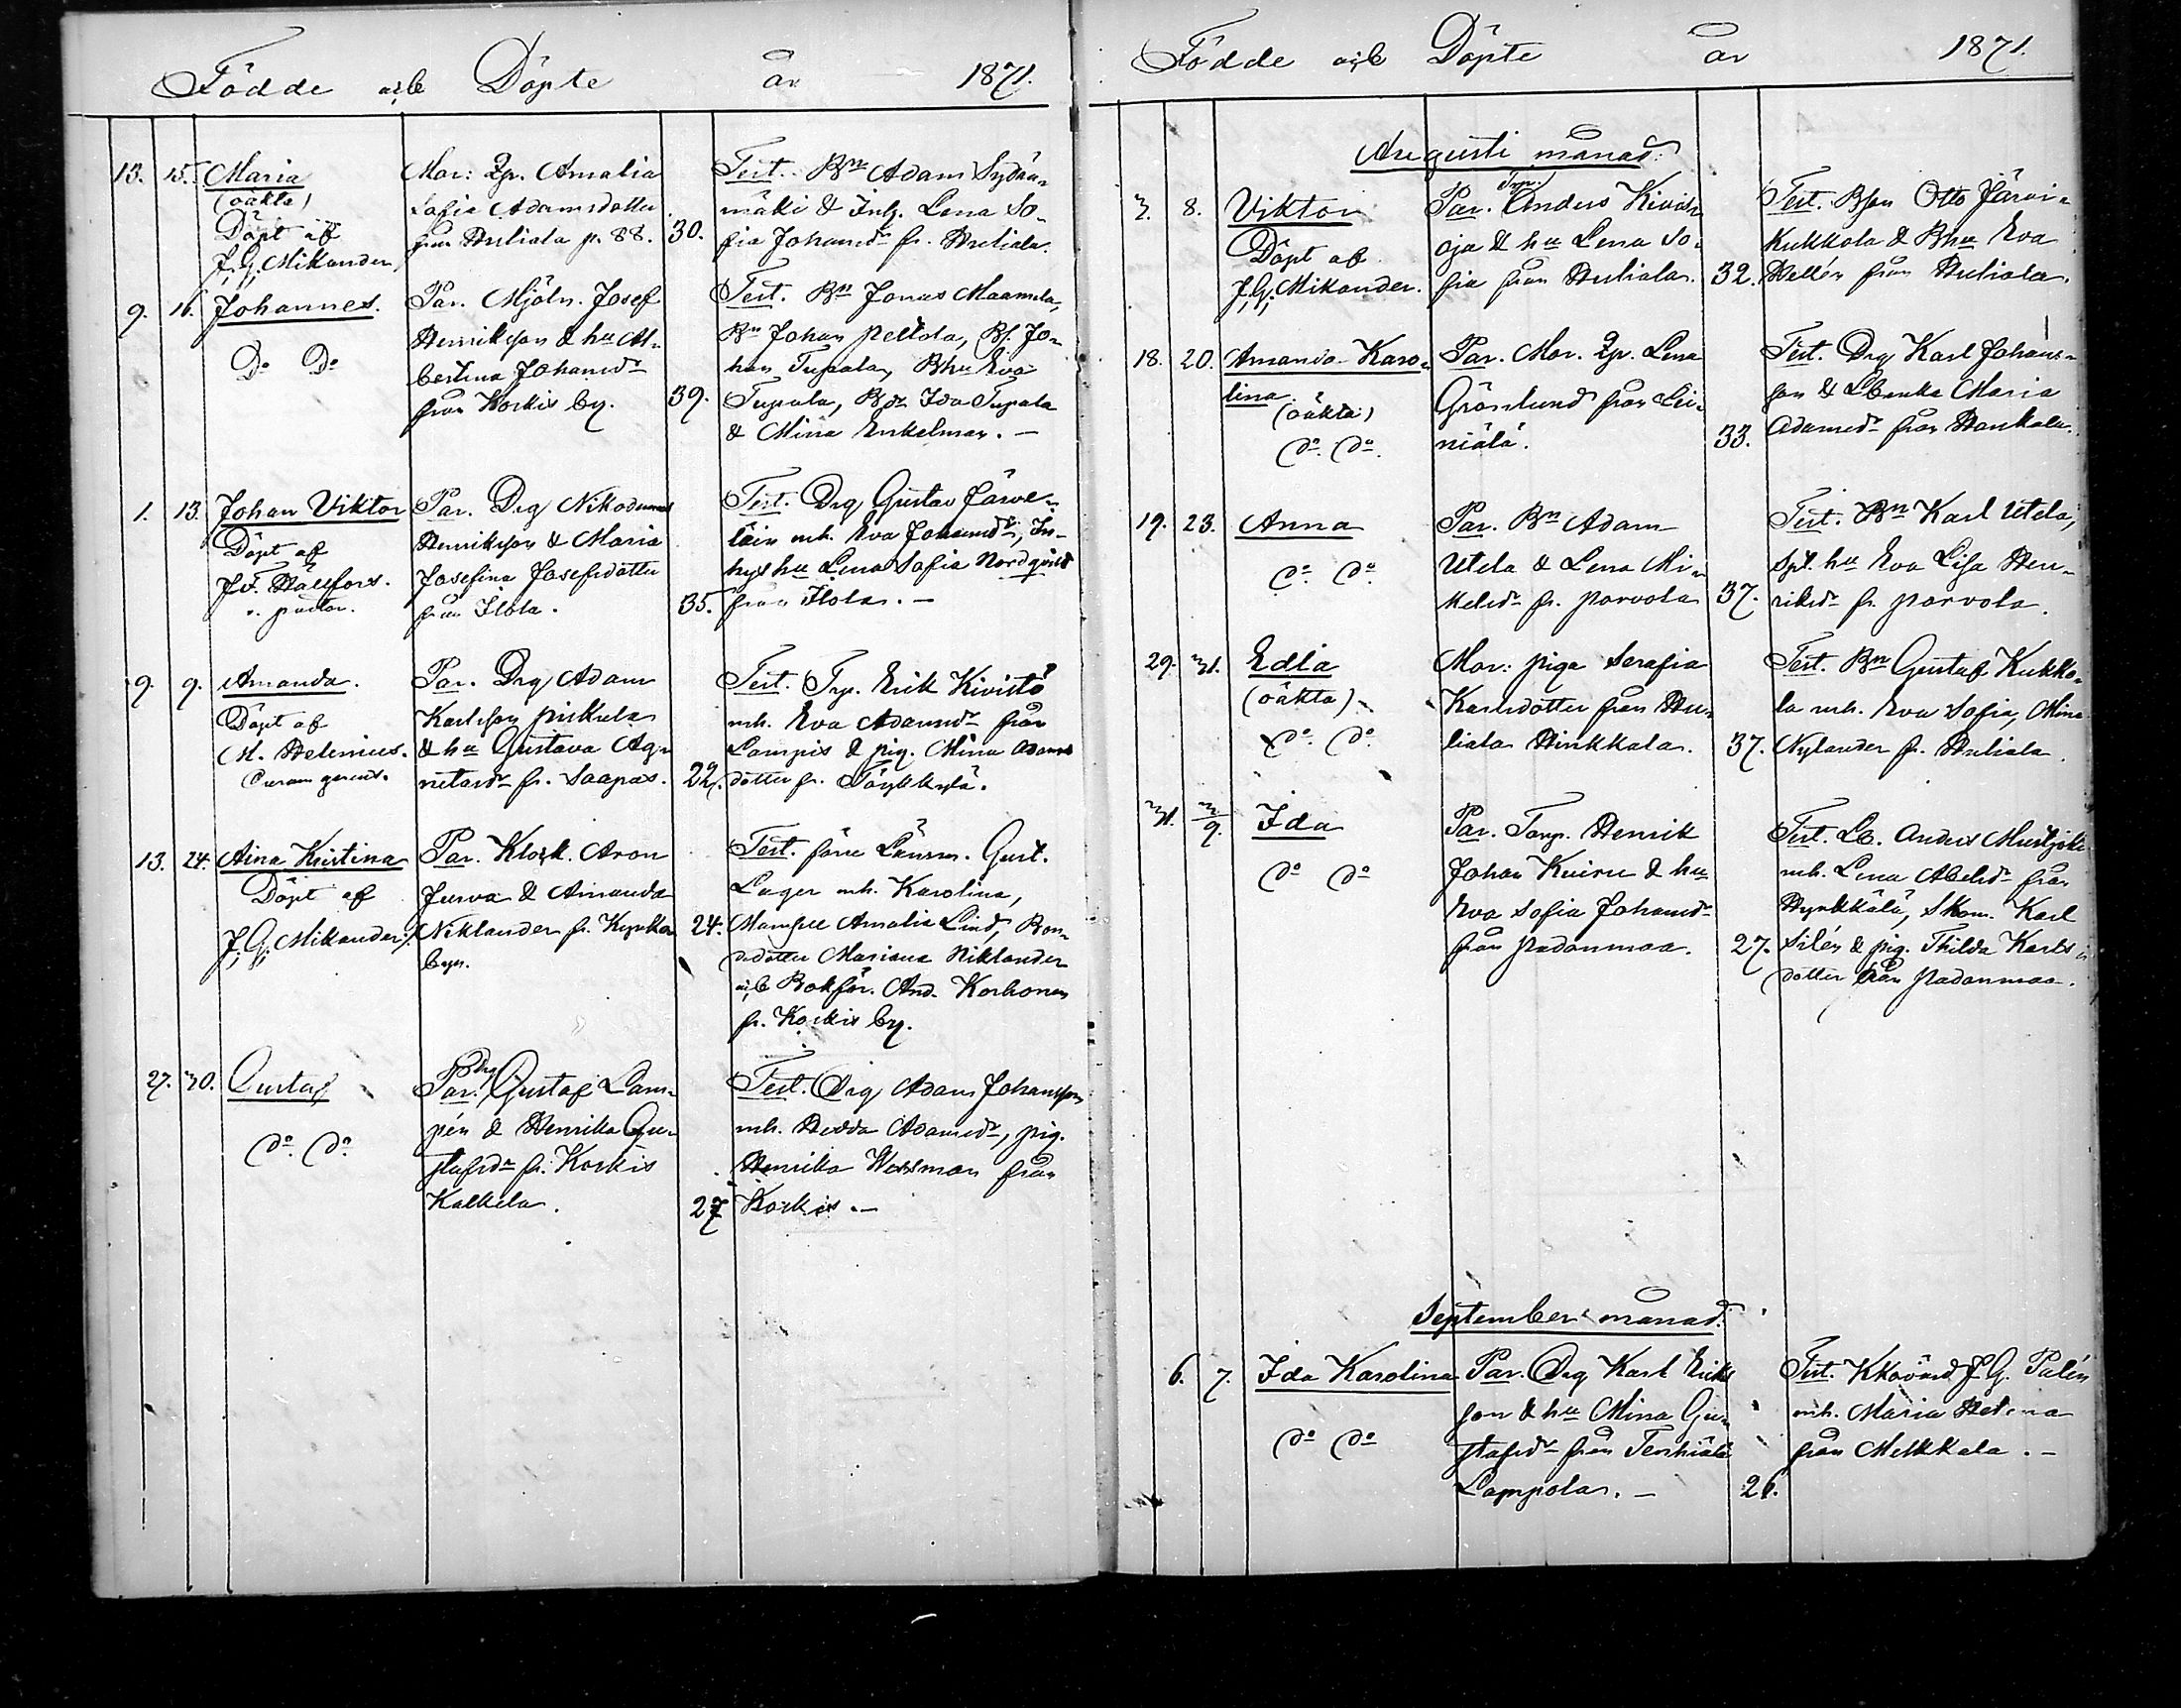 Födde och Döpte år 1871.
13. 15. Maria
(oäkta)
Döpt af
J. G. Mikander
Mor: Qp. Amalia
Sofia Adamsdotter
från Huliala p. 88. 30.
Test. Bn Adam Sydän-
mäki & Inh. Lena So-
fia Johansdr fr. Huliala.
9. 16. Johannes.
Do Do
Par. Mjöln. Josef
Henriksson & hu Al-
bertina Johansdr
från Korkis by. 39.
Test. Bn Jonas Maamela,
Bn Johan Peltola, Bs. Jo-
han Tupala, Bhu Eva
Tupala, Bdr Ida Tupala
& Mina Enkelman. —
1. 13. Johan Viktor
Döpt af
J. F. Hallfors.
v. pastor.
Par. Drg Nikodemus
Henriksson & Maria
Josefina Josefsdotter
från Ilola. 35.
Test. Drg Gustav Järve-
läin mh. Eva Johansdr, In-
hys hu Lena Sofia Nordqvist
från Ilola. —
9. 9. Amanda.
Döpt af
M. Helenius.
Curam gerens.
Par. Drg Adam
Karlsson Pirkula
& hu Gustava Ag-
netasdr fr. Saapas. 22.
Test. Trp. Erik Kivistö
mh. Eva Adamsdr från
Lampis & pig. Mina Adams
dotter fr. Töykkylä.
13. 24. Aina Kristina
Döpt af
J. G. Mikander
Par. Klock. Aron
Jurva & Amanda
Niklander fr. Kyrko
byn. 24.
Test. förre Länsm. Gust.
Lager mh. Karolina,
Mamsell Amalia Lind, Bon-
dedotter Mariana Niklander
och Bokför. And. Korhonen
fr. Korkis by.
27. 30. Gustaf
Do. Do.
Par. Drg Gustaf Lam-
pén & Henrika Gu-
stafsdr fr. Korkis
Kalkela. 27
Test. Drg Adam Johansson
mh. Hedda Adamsdr, pig.
Henrika Wossman från
Korkis. —
Födde och Döpte år 1871.
Augusti månad.
3. 8. Viktor
Döpt af
J. G. Mikander.
Par. Trp. Anders Kivis-
oja & hu Lena So-
fia från Huliala. 32.
Test. Bson Otto Järvi-
Kukkola & Bhu Eva
Hellén från Huliala.
18. 20. Amanda Karo-
lina.
(oäkta)
Do. Do.
Par. Mor. Qp. Lena
Grönlund från Lei-
niälä. 33.
Test. Drg Karl Johans-
son & Lbenka Maria
Adamsdr från Hankala.
19. 23. Anna
Do. Do.
Par. Bn Adam
Utela & Lena Mi-
kelsdr fr. Porvola 37.
Test. Bn Karl Utela,
Spl. hu Eva Lisa Hen-
riksdr fr. Porvola.
29. 31. Edla
(oäkta)
Do. Do.
Mor: piga Serafia
Karlsdotter från Hu-
liala Hinkkala. 37.
Test. Bn Gustaf Kukko-
la mh. Eva Sofia, Mina
Nylander fr. Huliala.
31. 3/9. Ida
Do Do
Par. Torp. Henrik
Johan Kuiru & hu
Eva Sofia Johansdr
från Padanmaa. 27.
Test. Lb. Anders Mustjoki
mh. Lena Abelsdr från
Hyrkkälä, Skom. Karl
Silén & pig. Thilda Karls
dotter från Padanmaa.
September månad.
6. 7. Ida Karolina
Do Do
Par. Drg Karl Eriks
son & hu Mina Gu-
stafsdr från Tenhiälä
Lampola. — 26.
Test. Kkovärd J. G. Palén
mh. Maria Helena
från Melkkala. —